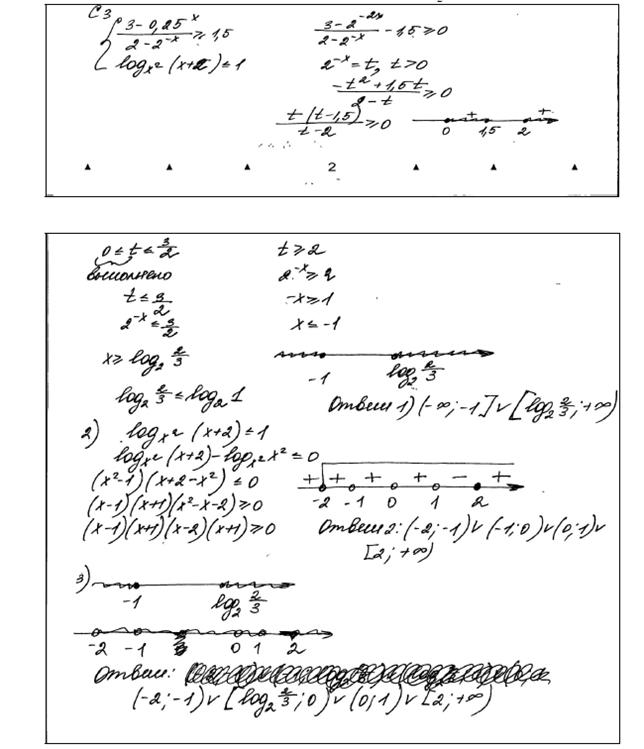 С3
{ (3 - 0,25^x)/(2 - 2^-x) ≥ 1,5
log_x² (x+2) ≤ 1
(3 - 2^-2x)/(2 - 2^-x) - 1,5 ≥ 0
2^-x = t, t > 0
(-t² + 1,5t)/(2 - t) ≥ 0
t(t - 1,5)/(t - 2) ≥ 0
+ +
0 1,5 2
2
0 ≤ t ≤ 3/2
выполнено
t ≤ 3/2
2^-x ≤ 3/2
x ≥ log₂ 2/3
log₂ 2/3 ≤ log₂ 1
t ≥ 2
2^-x ≥ 2
-x ≥ 1
x ≤ -1
-1 log₂ 2/3
Ответ 1) (-∞; -1] ∨ [log₂ 2/3; +∞)
2) log_x² (x+2) ≤ 1
log_x² (x+2) - log_x² x² ≤ 0
(x²-1)(x+2-x²) ≤ 0
(x-1)(x+1)(x²-x-2) ≥ 0
(x-1)(x+1)(x-2)(x+1) ≥ 0
+ + + + - +
-2 -1 0 1 2
Ответ 2: (-2; -1) ∨ (-1; 0) ∨ (0; 1) ∨
[2; +∞)
3)
-1 log₂ 2/3
-2 -1 0 1 2
Ответ:
(-2; -1) ∨ [log₂ 2/3; 0) ∨ (0; 1) ∨ [2; +∞)